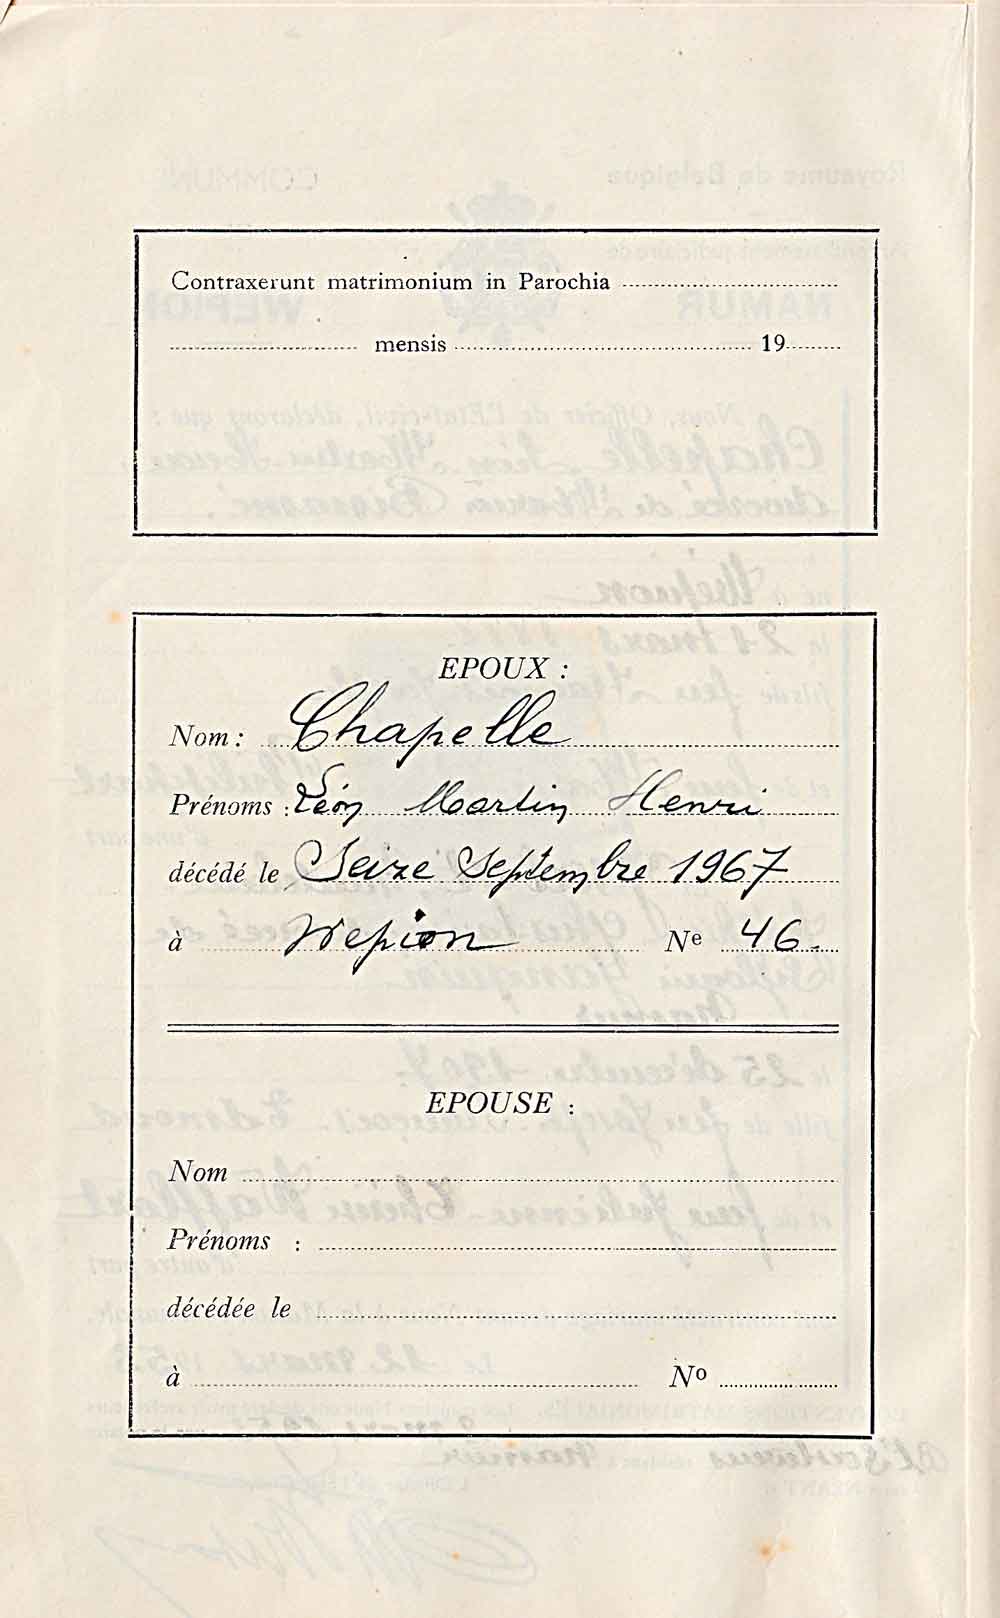 Contraxerunt matrimonium in Parochia
mensis 19
EPOUX :
Nom : Chapelle
Prénoms : Léon Martin Henri
décédé le Seize Septembre 1967
à Wepion Ne 46.
EPOUSE :
Nom
Prénoms :
décédée le
à No